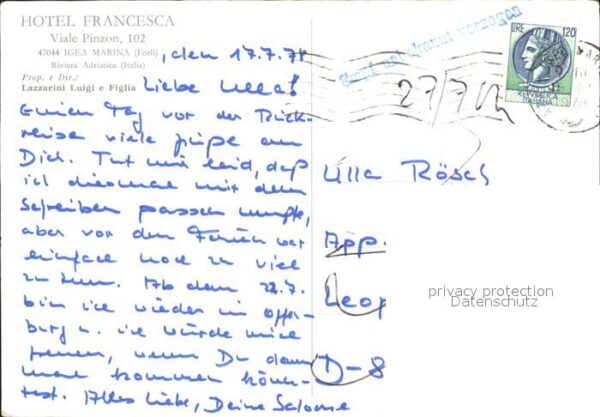 HOTEL FRANCESCA
Viale Pinzon, 102
47044 IGEA MARINA (Forlì)
Riviera Adriatica (Italia)
Prop. e Dir.:
Lazzarini Luigi e Figlia
, den 17.7.78
Liebe Ulla!
Einen Tag vor der Rück-
reise viele Grüße an
Dich. Tut mir leid, daß
ich diesmal mit dem
Schreiben passen mußte,
aber vor den Ferien war
einfach noch zu viel
zu tun. Ab dem 22.7.
bin ich wieder in Offen-
burg u. ich würde mich
freuen, wenn Du dann
mal kommen könn-
test. Alles Liebe, Deine Salome
unbekannt verzogen
27/7
LIRE 120
REPUBBLICA
ITALIANA
Ulla Rösch
App.
Leop
D-8
privacy protection
Datenschutz